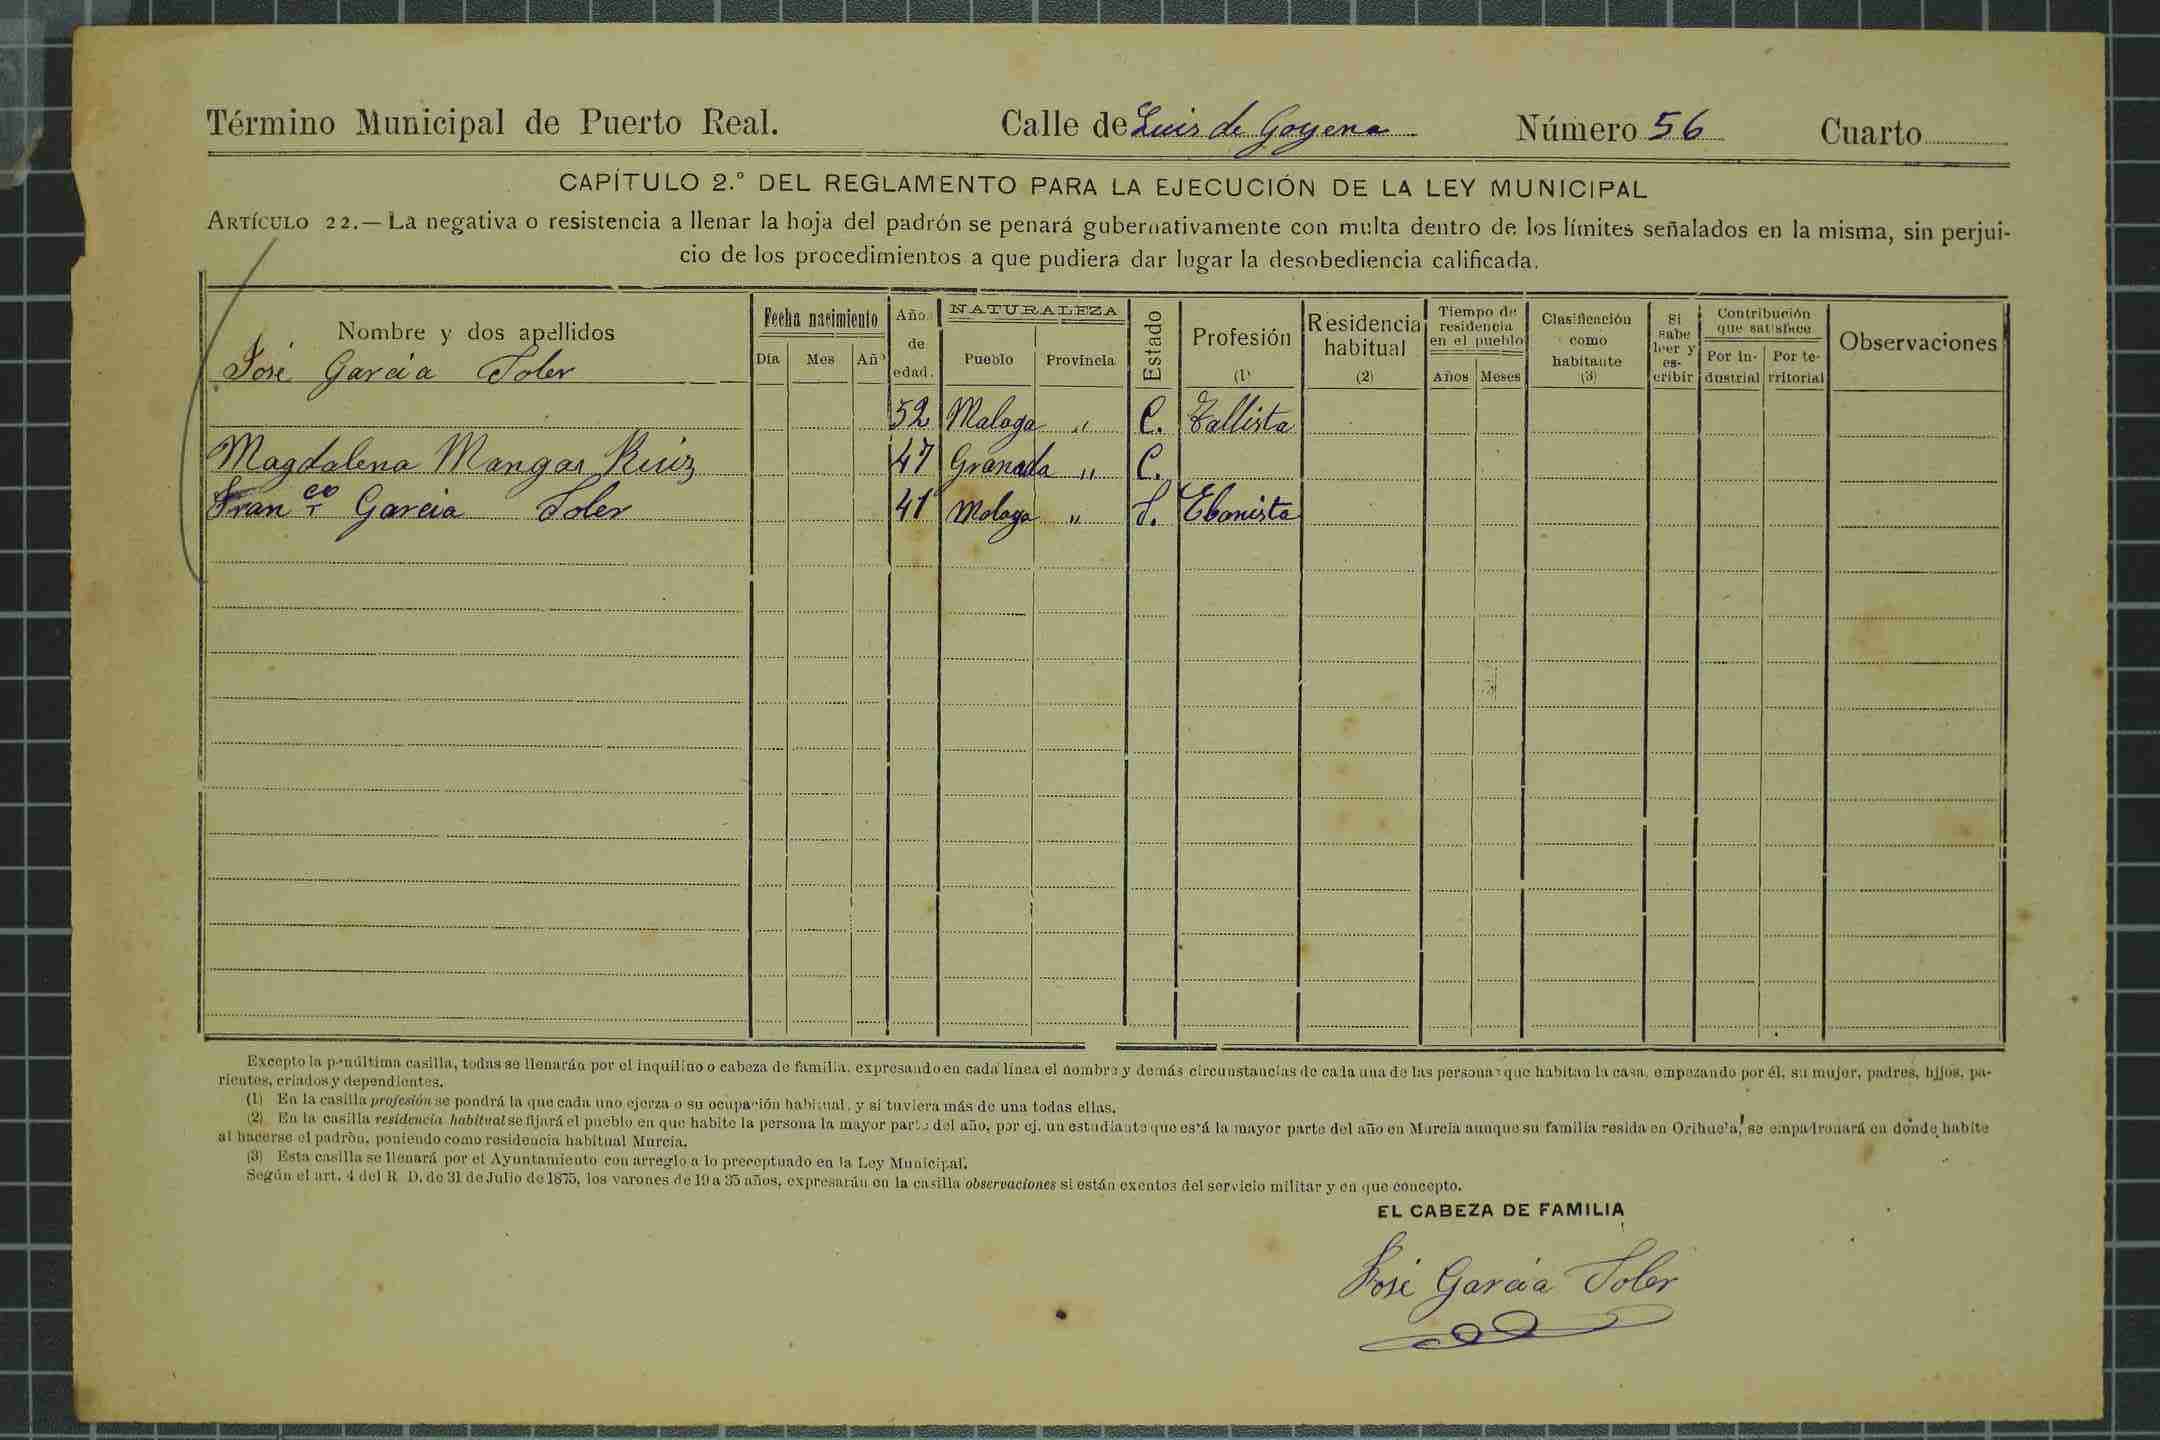 Término Municipal de Puerto Real. Calle de Luis de Goyena Número 56 Cuarto
CAPÍTULO 2.º DEL REGLAMENTO PARA LA EJECUCIÓN DE LA LEY MUNICIPAL
ARTÍCULO 22.—La negativa o resistencia a llenar la hoja del padrón se penará gubernativamente con multa dentro de los límites señalados en la misma, sin perjui-
cio de los procedimientos a que pudiera dar lugar la desobediencia calificada.
Nombre y dos apellidos
Fecha nacimiento
Día Mes Añº
Años de edad.
NATURALEZA
Pueblo Provincia
Estado
Profesión (1)
Residencia habitual (2)
Tiempo de residencia en el pueblo
Años Meses
Clasificación como habitante (3)
Si sabe leer y es-cribir
Contribución que satisface
Por in-dustrial Por te-rritorial
Observaciones
José Garcia Soler
52 Malaga " C. Tallista
Magdalena Mangas Ruiz 47 Granada " C.
Fran.co Garcia Soler 41 Malaga " S. Ebanista
Excepto la penúltima casilla, todas se llenarán por el inquilino o cabeza de familia, expresando en cada línea el nombre y demás circunstancias de cada una de las personas que habitan la casa, empezando por él, su mujer, padres, hijos, pa-
rientes, criados y dependientes.
(1) En la casilla profesión se pondrá la que cada uno ejerza o su ocupación habitual, y si tuviera más de una todas ellas.
(2) En la casilla residencia habitual se fijará el pueblo en que habite la persona la mayor parte del año, por ej. un estudiante que está la mayor parte del año en Murcia aunque su familia resida en Orihuela, se empadronará en donde habite
al hacerse el padrón, poniendo como residencia habitual Murcia.
(3) Esta casilla se llenará por el Ayuntamiento con arreglo a lo preceptuado en la Ley Municipal.
Según el art. 4 del R D. de 31 de Julio de 1875, los varones de 19 a 35 años, expresarán en la casilla observaciones si están exentos del servicio militar y en que concepto.
EL CABEZA DE FAMILIA
José Garcia Soler